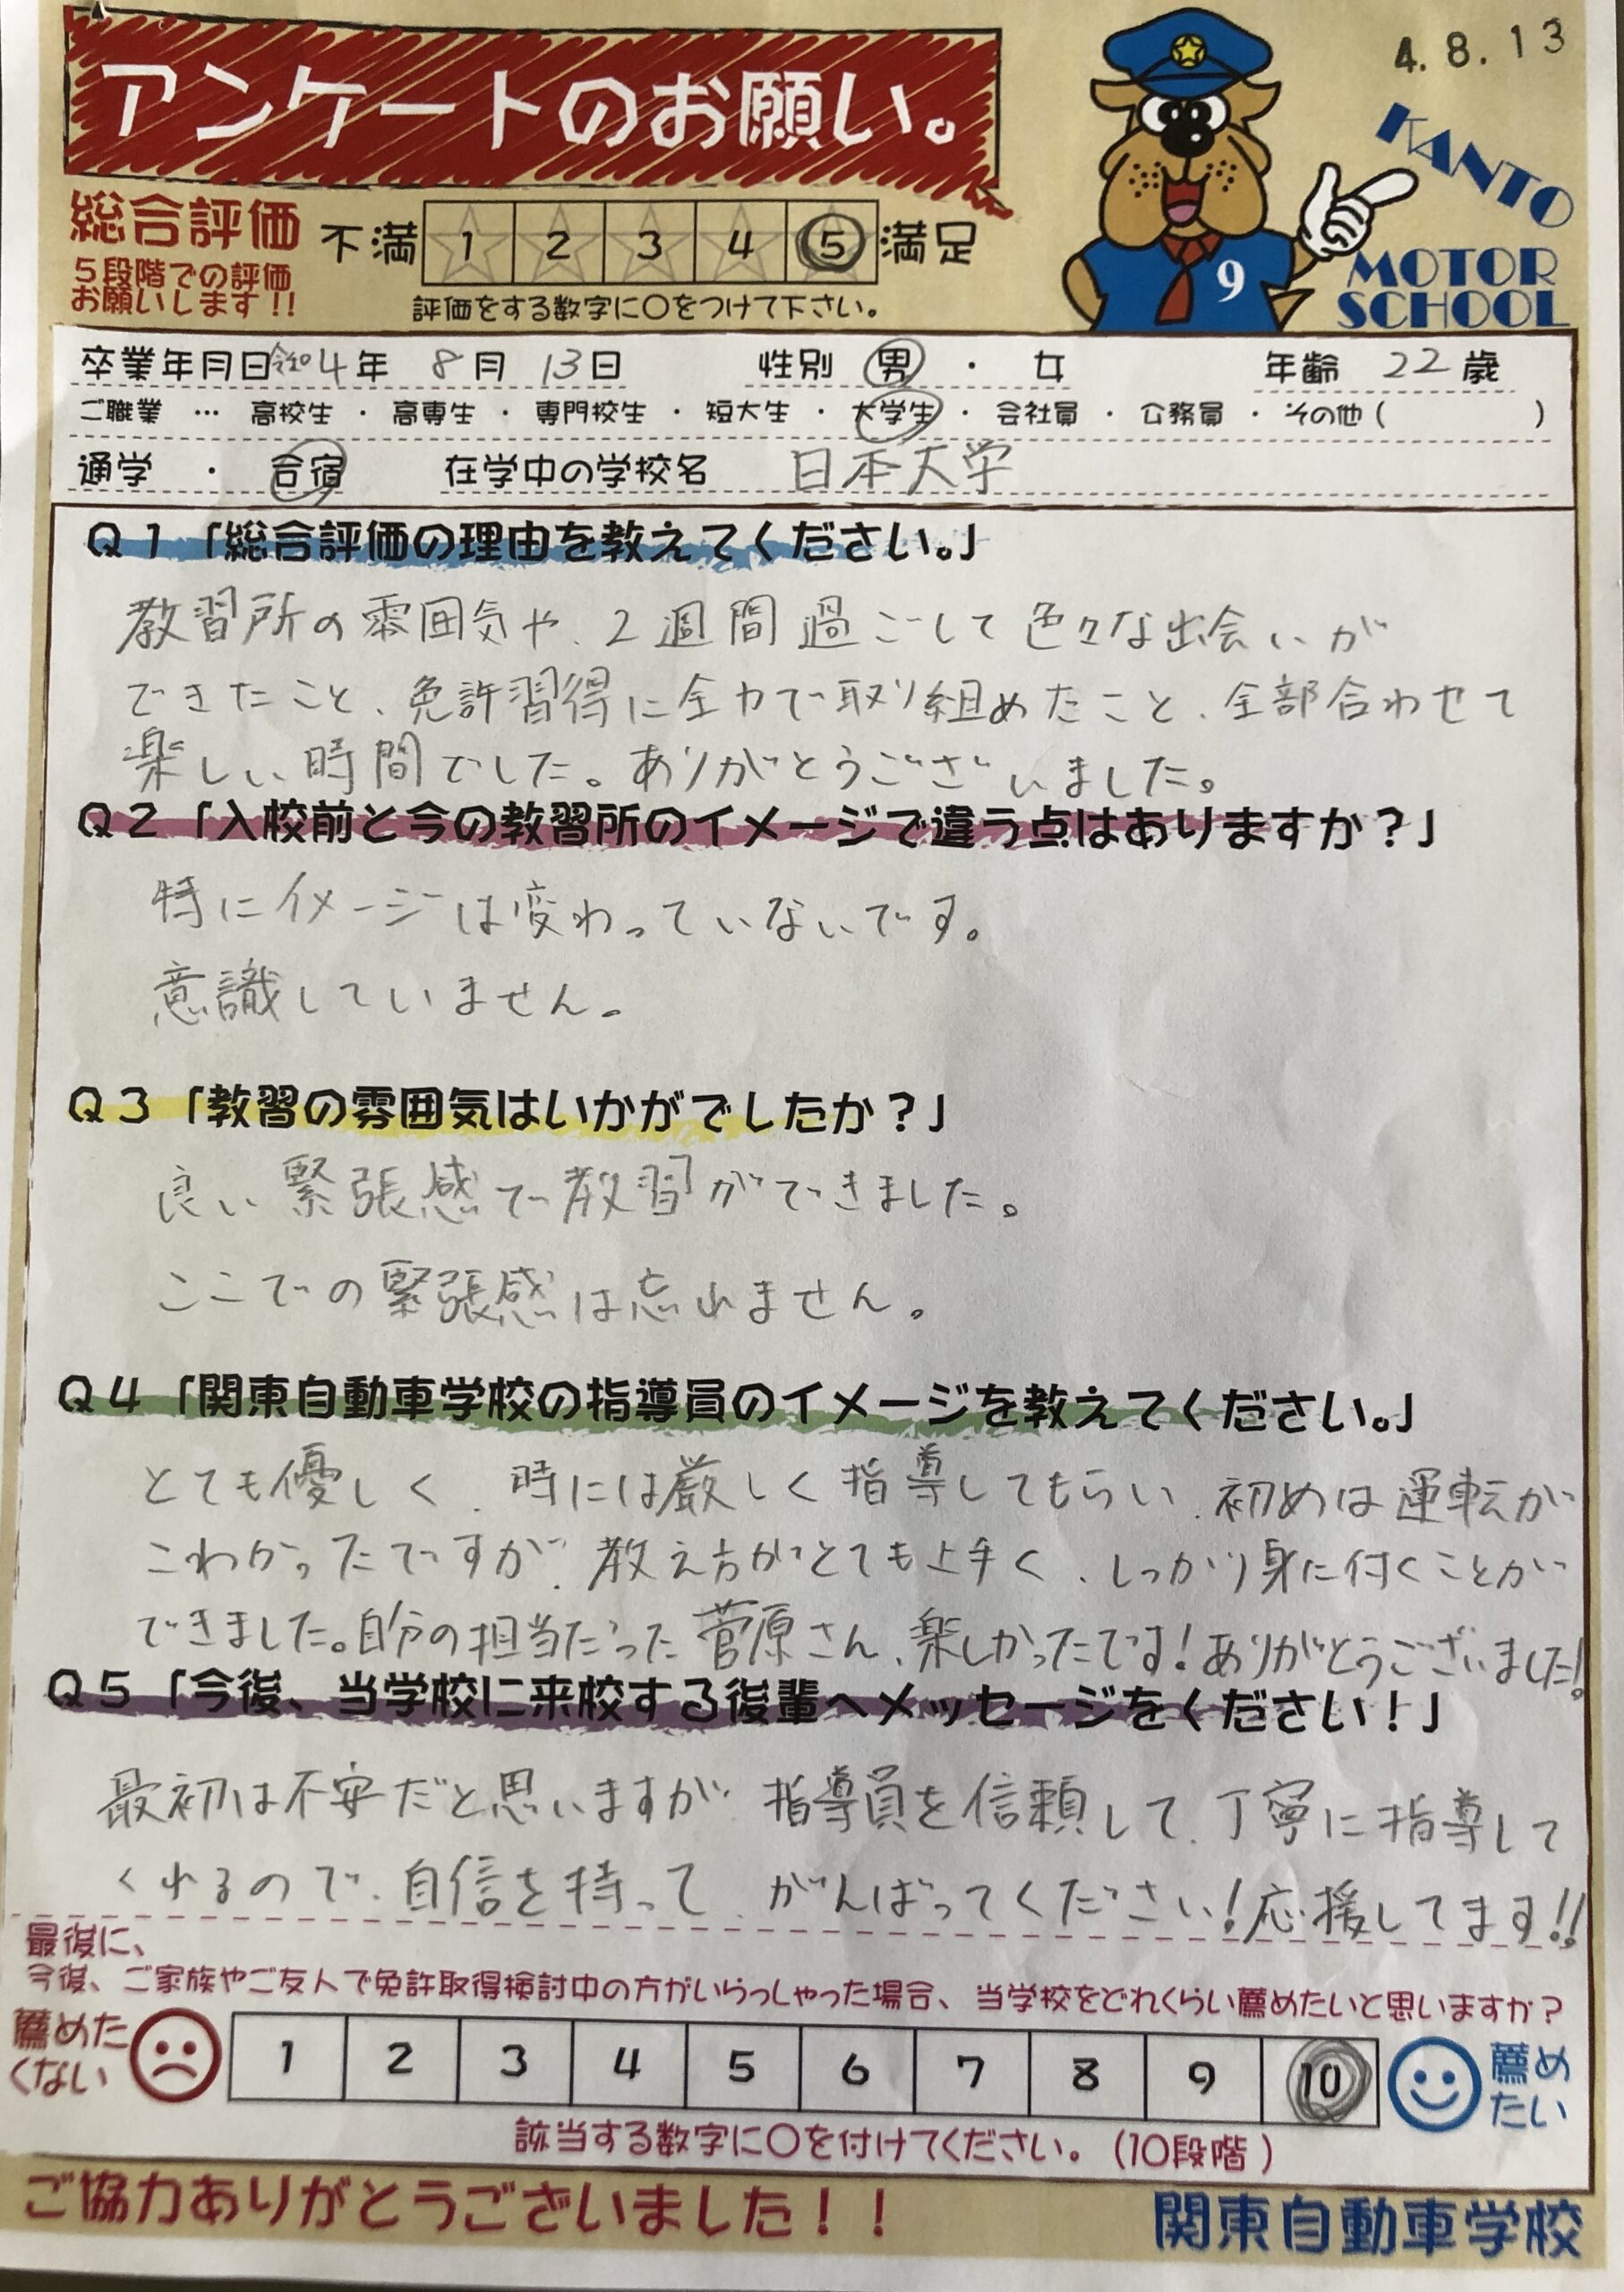 アンケートのお願い。
4.8.13
KANTO
MOTOR
SCHOOL
9
総合評価
5段階での評価
お願いします!!
不満 1 2 3 4 5 満足
評価をする数字に○をつけて下さい。
卒業年月日 令和4年 8月 13日 性別 男 ・ 女 年齢 22 歳
ご職業 … 高校生 ・ 高専生 ・ 専門校生 ・ 短大生 ・ 大学生 ・ 会社員 ・ 公務員 ・ その他 ( )
通学 ・ 合宿 在学中の学校名 日本大学
Q1「総合評価の理由を教えてください。」
教習所の雰囲気や、2週間過ごして色々な出会いが
できたこと、免許習得に全力で取り組めたこと、全部合わせて
楽しい時間でした。ありがとうございました。
Q2「入校前と今の教習所のイメージで違う点はありますか?」
特にイメージは変わっていないです。
意識していません。
Q3「教習の雰囲気はいかがでしたか?」
良い緊張感で教習ができました。
ここでの緊張感は忘れません。
Q4「関東自動車学校の指導員のイメージを教えてください。」
とても優しく、時には厳しく指導してもらい、初めは運転が
こわかったですが、教え方がとても上手く、しっかり身に付くことが
できました。自分の担当だった菅原さん、楽しかったです!ありがとうございました!
Q5「今後、当学校に来校する後輩へメッセージをください!」
最初は不安だと思いますが、指導員を信頼して、丁寧に指導して
くれるので、自信を持って、がんばってください!応援してます!!
最後に、
今後、ご家族やご友人で免許取得検討中の方がいらっしゃった場合、当学校をどれくらい薦めたいと思いますか?
薦めたくない 1 2 3 4 5 6 7 8 9 10 薦めたい
該当する数字に○を付けてください。(10段階)
ご協力ありがとうございました!!
関東自動車学校